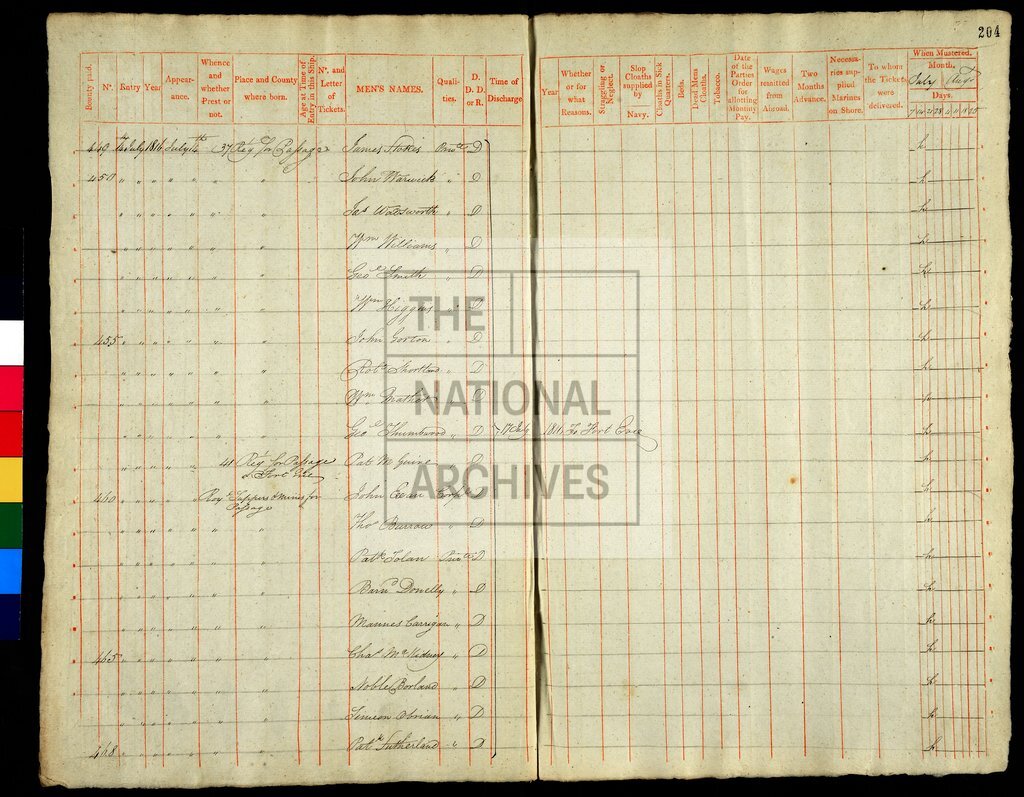 204
Bounty paid. Nº. Entry Year Appear-ance. Whence and whether Prest or not. Place and County where born. Age at Time of Entry in this Ship. Nº. and Letter of Tickets. MEN'S NAMES. Quali-ties. D. D.D. or R. Time of Discharge Year Whether or for what Reasons. Straggling or Neglect. Slop Cloaths supplied by Navy. Cloaths in Sick Quarters. Beds. Dead Mens Cloaths. Tobacco. Date of the Parties Order for allotting Monthly Pay. Wages remitted from Abroad. Two Months Advance. Necessa-ries sup-plied Marines on Shore. To whom the Tickets were delivered. When Mustered. Month. July Augt Days.
449 14 July 1816 July 14th 37 Regt for Passage James Stokes Privte D
450 " " " " " " John Warwick " D
" " " " " " Jas Wadsworth " D
" " " " " " Wm Williams " D
" " " " " " Geoe Smith " D
" " " " " " Wm Higgins " D
455 " " " " " " John Gorton " D
" " " " " " Robt Shortland " D
" " " " " " Wm Mather " D
" " " " " " Geoe Thumbwood " D 17 July 1816 To Fort Erie
" " " " 41 Regt for Passage to Fort Erie Patk McGuire " D
460 " " " " Royl Sappers & Miners for Passage John Evan Corpl D
" " " " " " Thos Burrows " D
" " " " " " Patk Tolan Privte D
" " " " " " Barnd Donelly " D
" " " " " " Mannes Carrigan " D
465 " " " " " " Chas McKidney " D
" " " " " " Noble Borland " D
" " " " " " Simeon Obrian " D
468 " " " " " " Patk Sutherland " D
THE
NATIONAL
ARCHIVES